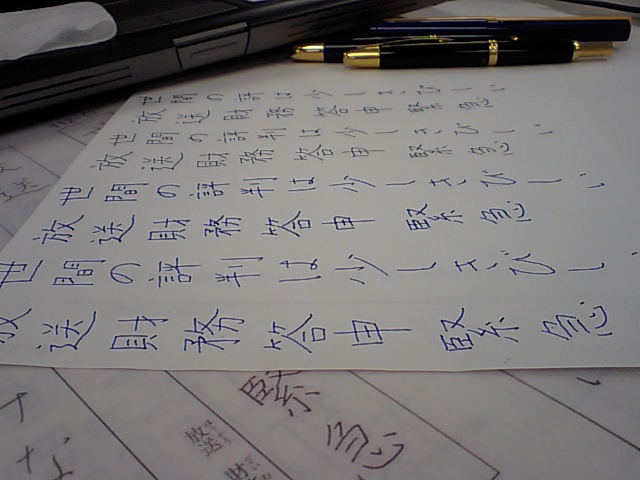 世間の評判は少しさびしい
放送財務答申 緊急
世間の評判は少しさびしい
放送財務答申 緊急
世間の評判は少しさびしい
放送財務答申 緊急
世間の評判は少しさびしい
放送財務答申 緊急
緊急
放送
財
な